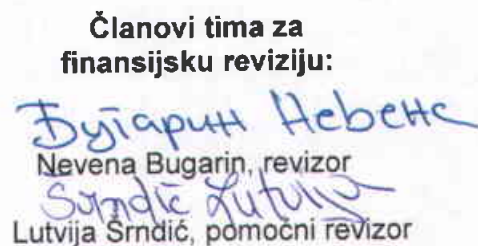 Članovi tima za
finansijsku reviziju:
Бугарин Невена
Nevena Bugarin, revizor
Srndić Lutvija
Lutvija Srndić, pomoćni revizor